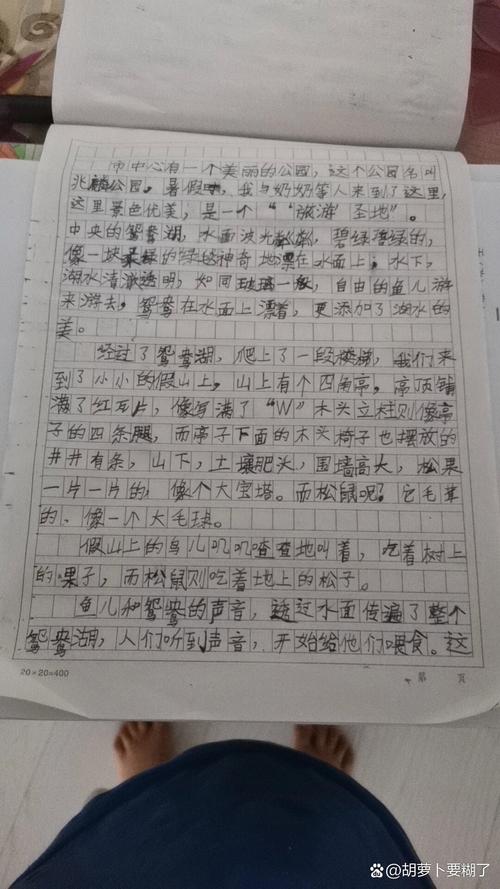 市中心有一个美丽的公园，这个公园名叫
兆麟公园。暑假中，我与奶奶等人来到了这里，
这里景色优美，是一个“旅游圣地”。
中央的鸳鸯湖，水面波光粼粼，碧绿的，
像一块绿毯神奇地漂在水面上；水下，
湖水清澈透明，如同玻璃一般，自由的鱼儿游
来游去，鸳鸯在水面上漂着，更添加了湖水的
美。
经过了鸳鸯湖，爬上了一段楼梯，我们来
到了小小的假山上，山上有个四角亭，亭顶铺
满了红瓦片，像写满了“W”木头立柱则像亭
子的四条腿，而亭子下面的木头椅子也摆放的
井井有条，山下，土壤肥头，围墙高大，松果
一片一片的，像个大宝塔。而松鼠呢？它毛茸
的、像一个大毛球。
假山上的鸟儿叽叽喳喳地叫着，吃着树上
的果子，而松鼠则吃着地上的松子。
鱼儿和鸳鸯的声音，透过水面传遍了整个
鸳鸯湖，人们听到声音，开始给他们喂食。这
20×20=400
第 页
@胡萝卜要糊了